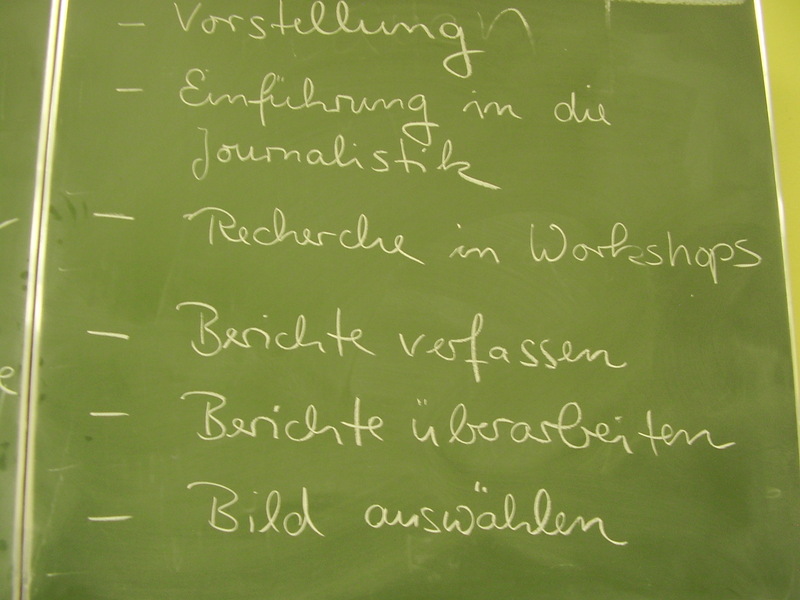 – Vorstellung
– Einführung in die
Journalistik
– Recherche in Workshops
– Berichte verfassen
– Berichte überarbeiten
– Bild auswählen